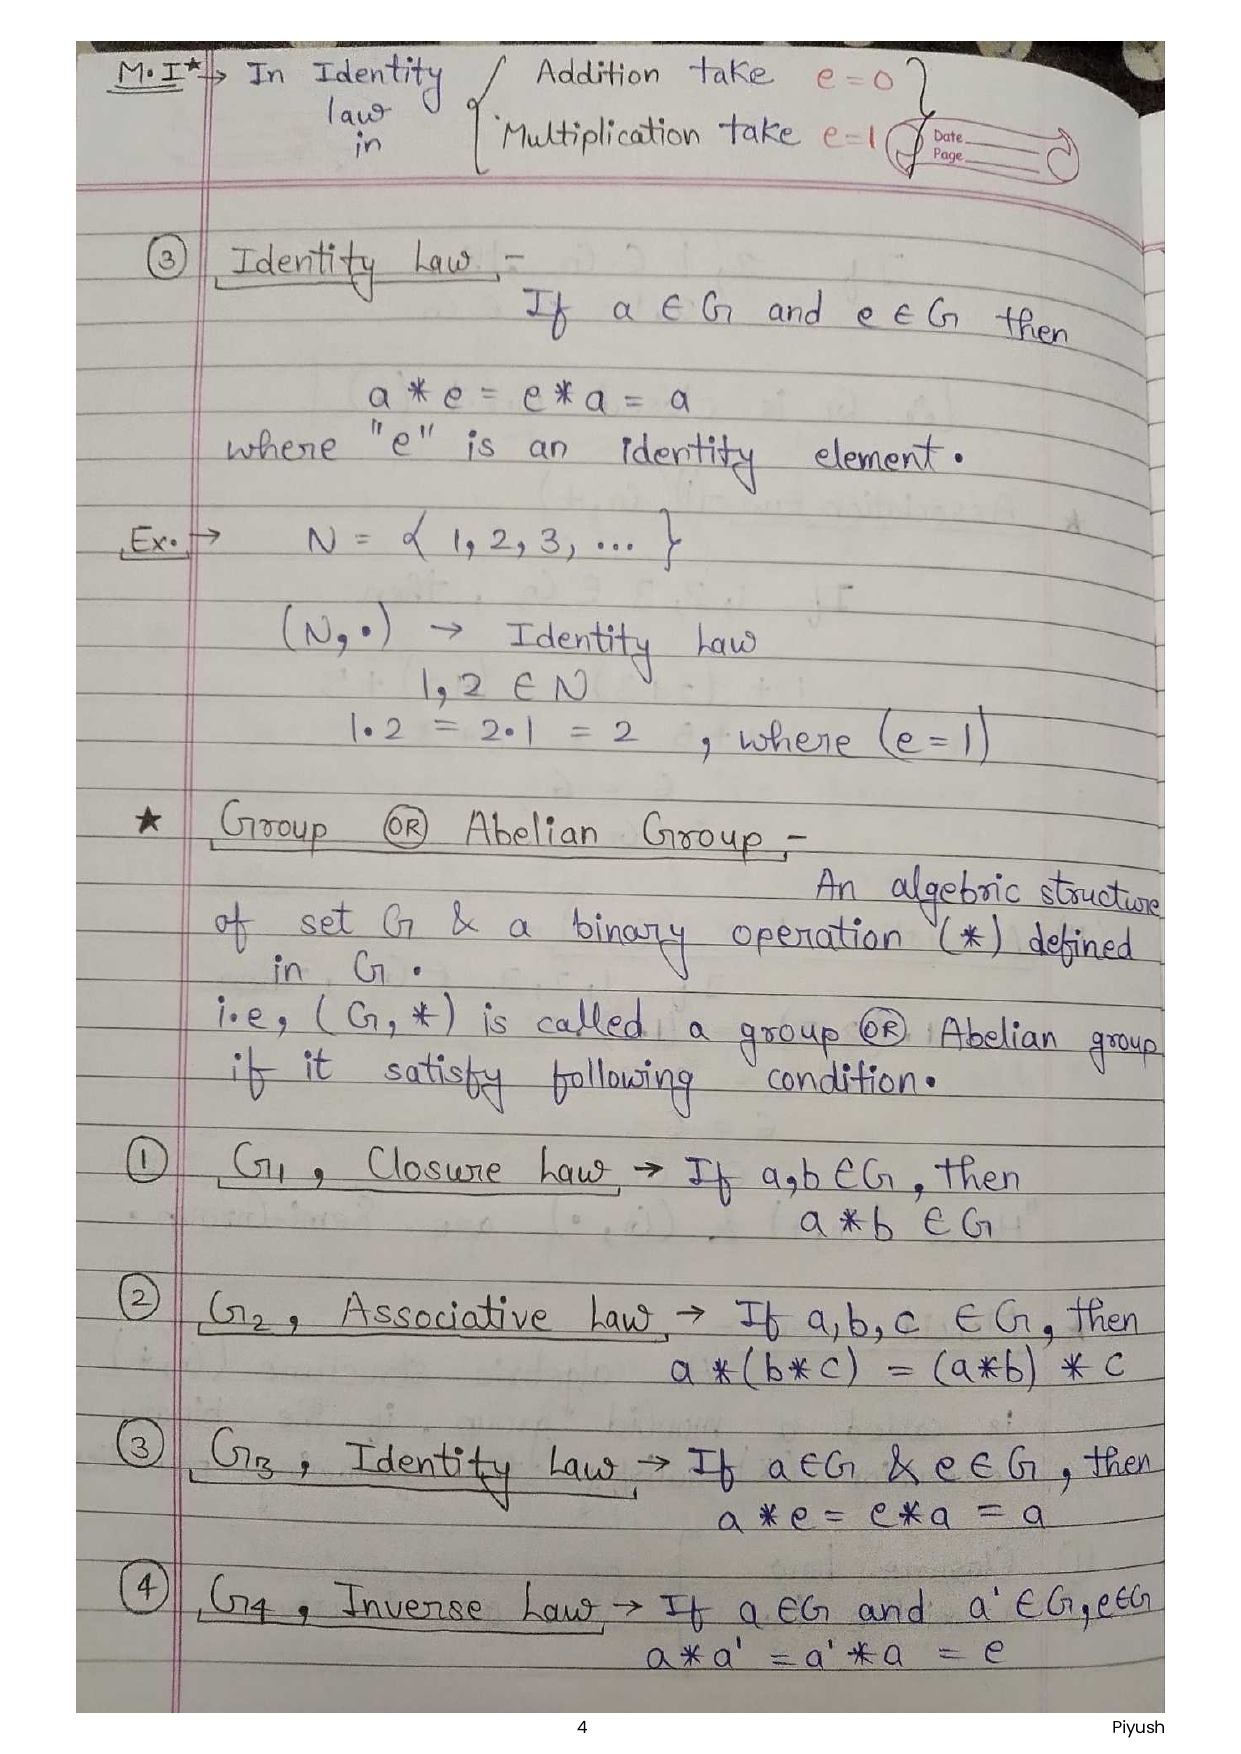 M.I* → In Identity law in { Addition take e = 0
Multiplication take e = 1 }
Date
Page
③ Identity Law :-
If a ∈ G and e ∈ G then
a * e = e * a = a
where "e" is an identity element.
Ex. → N = { 1, 2, 3, ... }
(N, •) → Identity Law
1, 2 ∈ N
1.2 = 2.1 = 2 , where (e = 1)
★ Group OR Abelian Group :-
An algebric structure
of set G & a binary operation (*) defined
in G.
i.e, (G, *) is called a group OR Abelian group
if it satisfy following condition.
① G1 , Closure Law → If a, b ∈ G , then
a * b ∈ G
② G2 , Associative Law → If a, b, c ∈ G, then
a * (b * c) = (a * b) * c
③ G3 , Identity Law → If a ∈ G & e ∈ G , then
a * e = e * a = a
④ G4 , Inverse Law → If a ∈ G and a' ∈ G, e ∈ G
a * a' = a' * a = e
4
Piyush